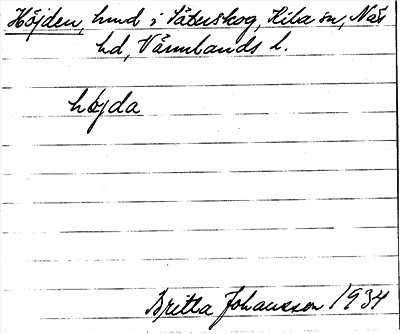 Höjden, hmd i Säterskog, Kila sn, Näs
hd, Värmlands l.
höjda
Britta Johansson 1934